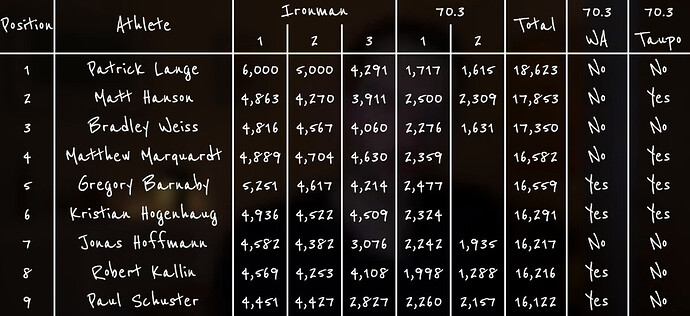 Position Athlete Ironman 70.3 Total 70.3 70.3
1 2 3 1 2 WA Taupo
1 Patrick Lange 6,000 5,000 4,291 1,717 1,615 18,623 No No
2 Matt Hanson 4,863 4,270 3,911 2,500 2,309 17,853 No Yes
3 Bradley Weiss 4,816 4,567 4,060 2,276 1,631 17,350 No No
4 Matthew Marquardt 4,889 4,704 4,630 2,359 16,582 No Yes
5 Gregory Barnaby 5,251 4,617 4,214 2,477 16,559 Yes Yes
6 Kristian Hogenhaug 4,936 4,522 4,509 2,324 16,291 Yes Yes
7 Jonas Hoffmann 4,582 4,382 3,076 2,242 1,935 16,217 No No
8 Robert Kallin 4,569 4,253 4,108 1,998 1,288 16,216 Yes No
9 Paul Schuster 4,451 4,427 2,827 2,260 2,157 16,122 Yes No